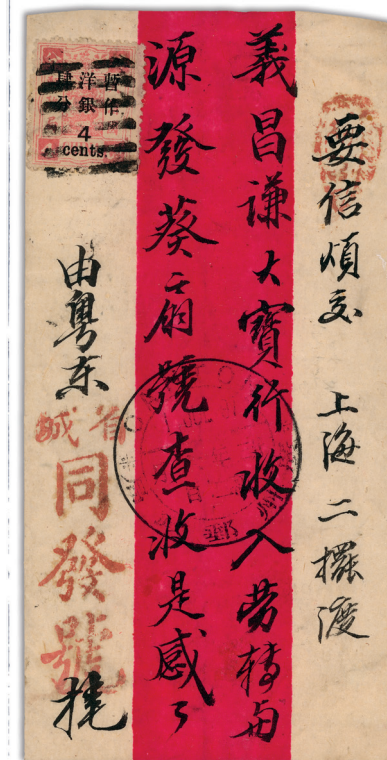 要信煩交 上海二擺渡
義昌謙大寶行收入劳轉與
源發葵扇號查收是感了
暫作
洋銀
肆分
4
cents.
由粤东
省城
同發號